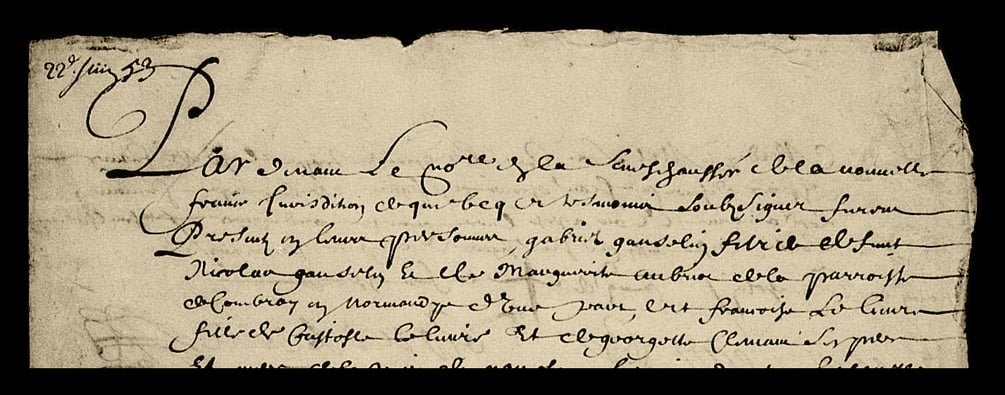 22e Juin 53
Pardevant Le no.re de la Seneschaussée de la nouvelle
france Jurisdition de quebecq et tesmoins soubz signez furent
Presents en leurs personnes, gabriel gauselin fils de defunt
Nicolas gauselin Et de Marguerite aubrie de la parroisse
de Combray en Normandye d'une part, Et francoise Le lieure
fille de Cristofle le lieure Et de georgette Clement Ses pere
Et